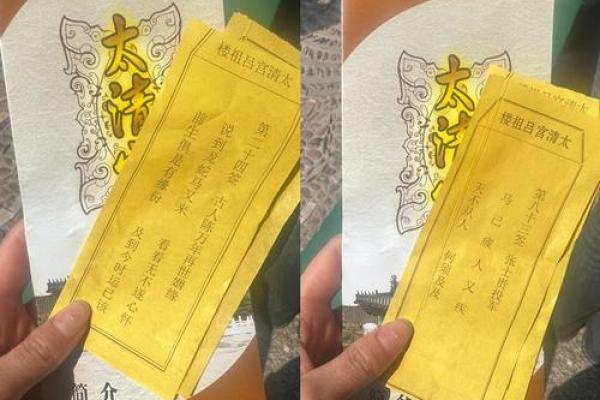 太清
太清宫吕祖楼
第二十四签 古人陈万年再世姻缘
说到龙蛇马又来 看看无不遂心怀
前生俱是有缘份 及到今时运已该
简介
太清
太清宫吕祖楼
第八十三签 张士贵投军
马已疲人又疾
天不从人 何须及及
简